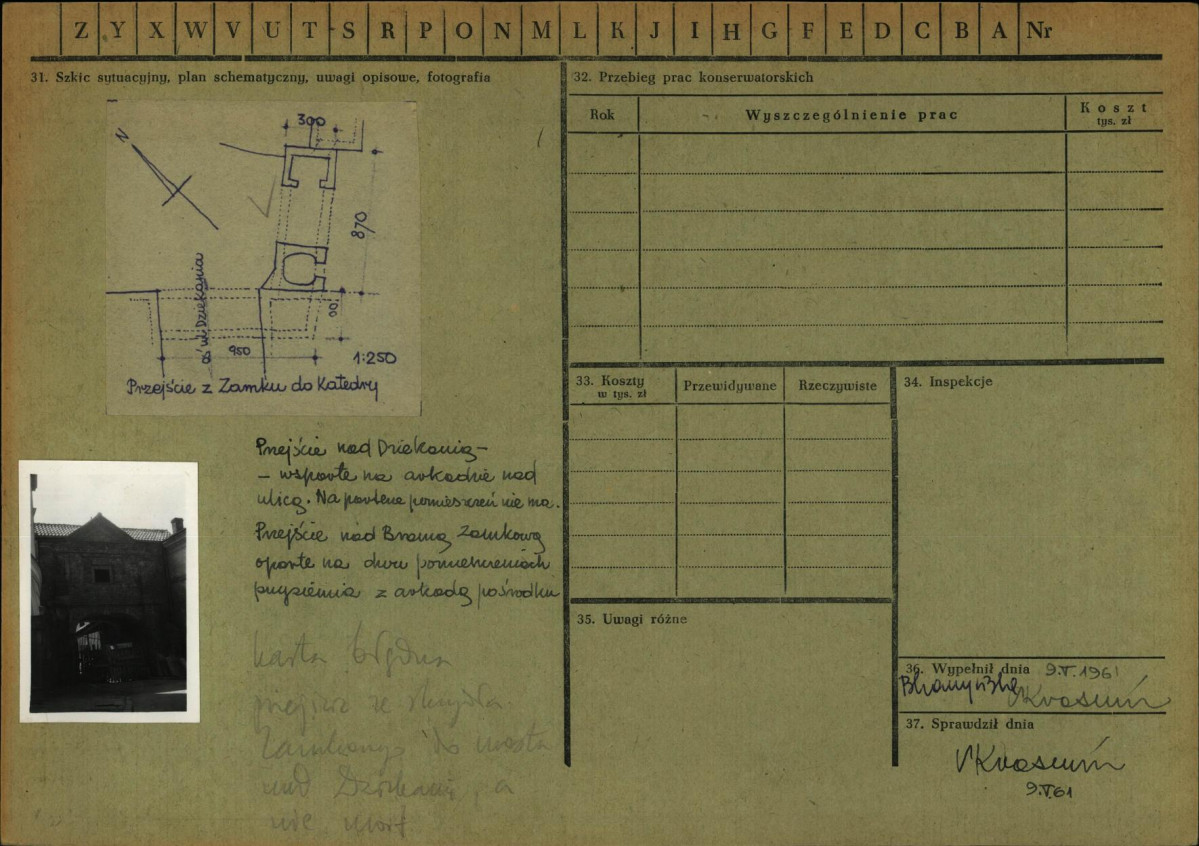 Z Y X W V U T S R P O N M L K J I H G F E D C B A Nr
31. Szkic sytuacyjny, plan schematyczny, uwagi opisowe, fotografia
N
300
870
ul. Dziekania
950
1:250
Przejście z Zamku do Katedry
Przejście nad Dziekanią –
– wsparte na arkadzie nad
ulicą. Na parterze pomieszczeń nie ma.
Przejście nad Bramą Zamkową
oparte na dwu pomieszczeniach
przyziemia z arkadą pośrodku
Karta błędna
przejście ze skrzydła
do mostu
nad a
nie
32. Przebieg prac konserwatorskich
Rok
Wyszczególnienie prac
Koszt
tys. zł
33. Koszty
w tys. zł
Przewidywane
Rzeczywiste
34. Inspekcje
35. Uwagi różne
36. Wypełnił dnia 9.V.1961
37. Sprawdził dnia
9.V.61